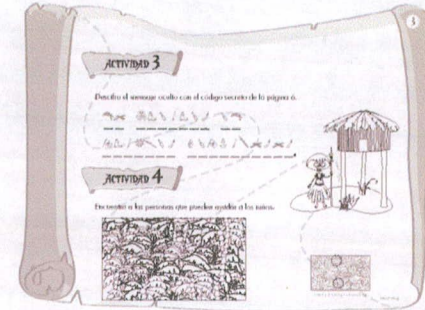 3
ACTIVIDAD 3
Descifra el mensaje oculto con el código secreto de la página 6.
ACTIVIDAD 4
Encuentra a las personas que pueden ayudar a los niños.